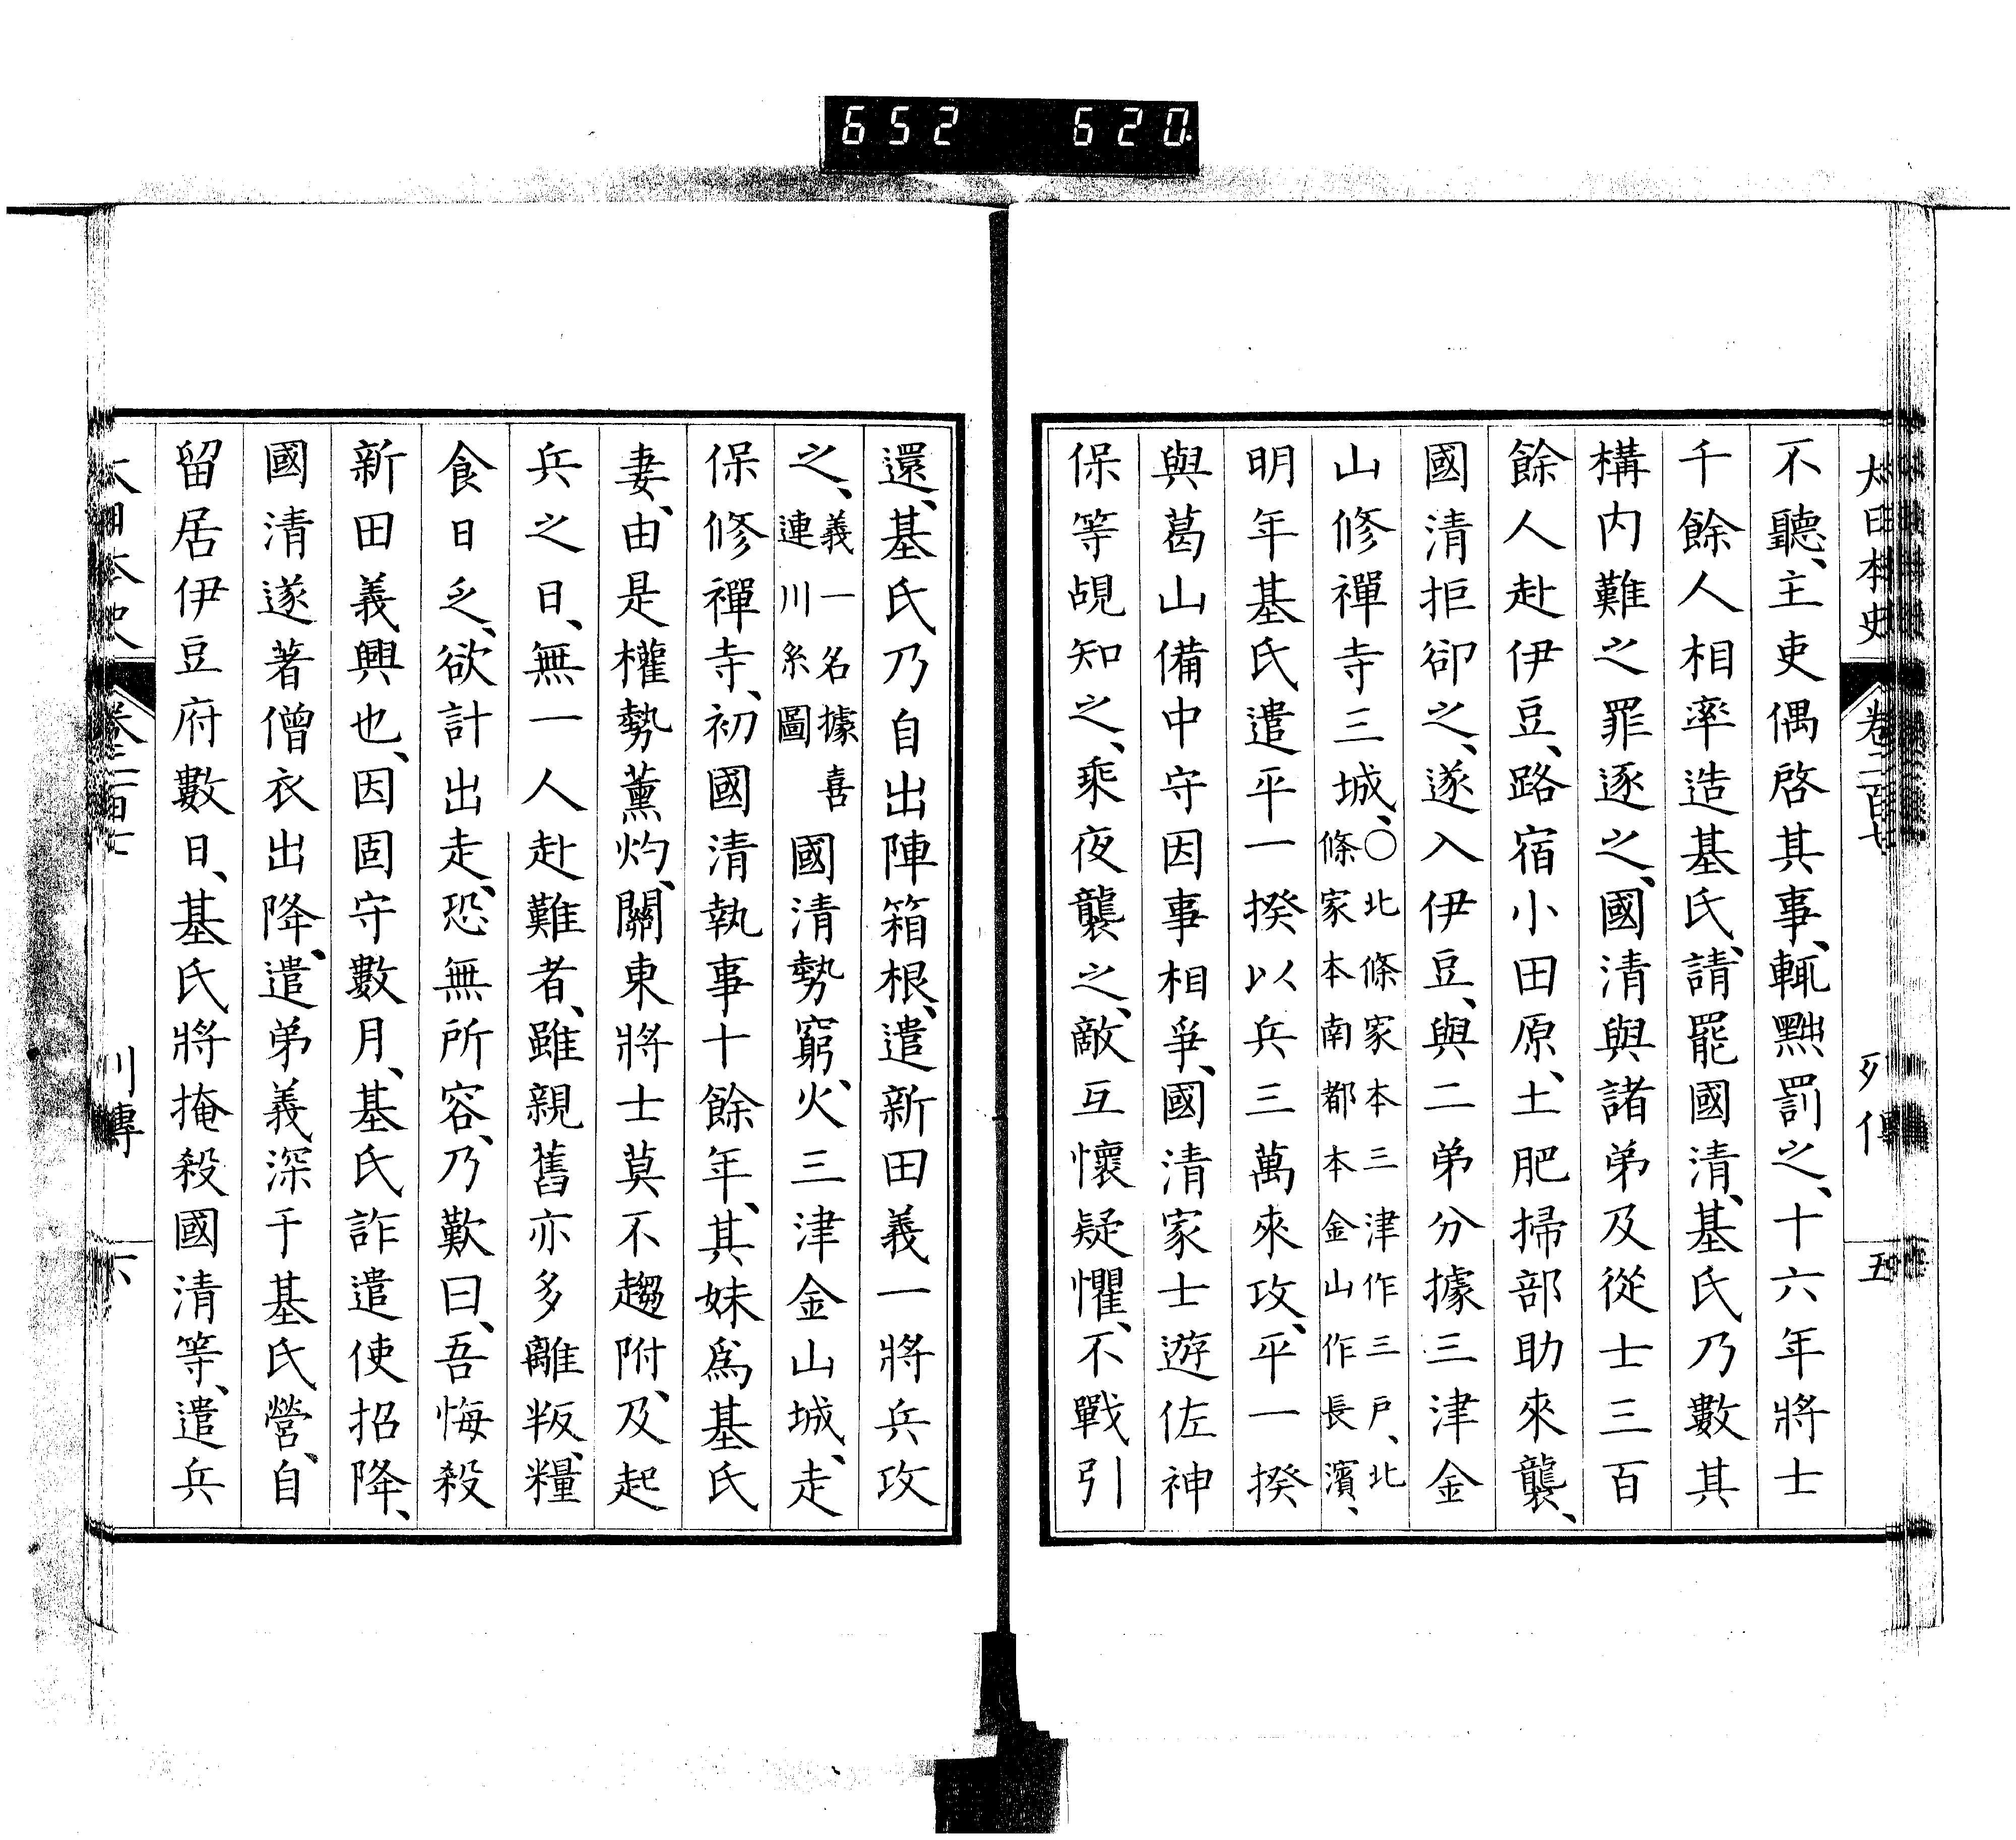 652 620
大日本史 卷二百七 列傳 五
不聽、主吏偶啓其事、輒黜罰之、十六年將士
千餘人相率造基氏、請罷國清、基氏乃數其
構內難之罪逐之、國清與諸弟及從士三百
餘人赴伊豆、路宿小田原、土肥掃部助來襲、
國清拒卻之、遂入伊豆、與二弟分據三津金
山修禪寺三城、○北條家本三津作三戶、北條家本南都本金山作長濱、
明年基氏遣平一揆以兵三萬來攻、平一揆
與葛山備中守因事相爭、國清家士遊佐神
保等覘知之、乘夜襲之、敵互懷疑懼、不戰引
還、基氏乃自出陣箱根、遣新田義一將兵攻
之、義一名據喜連川系圖 國清勢窮、火三津金山城、走
保修禪寺、初國清執事十餘年、其妹爲基氏
妻、由是權勢薰灼、關東將士莫不趨附、及起
兵之日、無一人赴難者、雖親舊亦多離叛、糧
食日乏、欲計出走、恐無所容、乃歎曰、吾悔殺
新田義興也、因固守數月、基氏詐遣使招降、
國清遂著僧衣出降、遣弟義深于基氏營、自
留居伊豆府數日、基氏將掩殺國清等、遣兵
大日本史 卷二百七 列傳 六